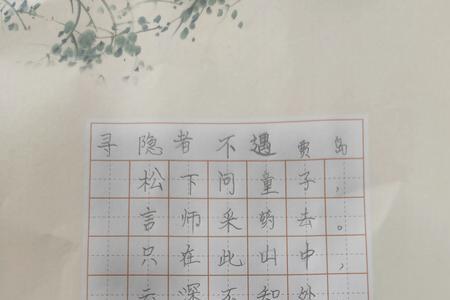 寻隐者不遇 贾岛
松下问童子，
言师采药去。
只在此山中，
云深不知处